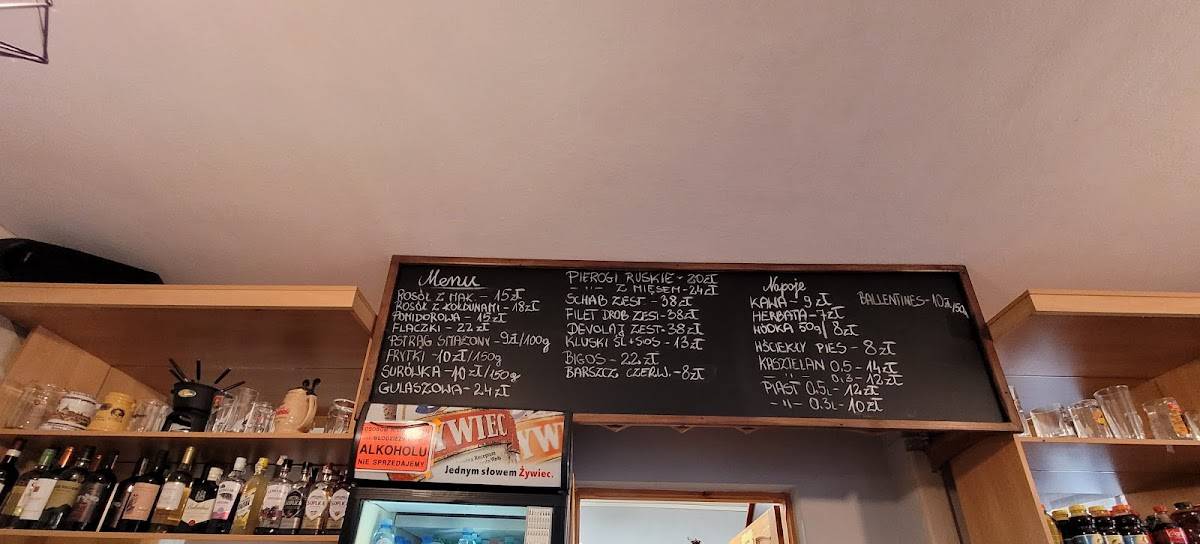 Menu
ROSÓŁ Z MAK. - 15 ZŁ
ROSÓŁ Z KOŁDUNAMI - 18 ZŁ
POMIDOROWA - 15 ZŁ
FLACZKI - 22 ZŁ
PSTRĄG SMAŻONY - 9 ZŁ/100g
FRYTKI - 10 ZŁ/150g
SURÓWKA - 10 ZŁ/150g
GULASZOWA - 24 ZŁ
PIEROGI RUSKIE - 20 ZŁ
- " - Z MIĘSEM - 24 ZŁ
SCHAB ZEST - 38 ZŁ
FILET DROB ZEST - 38 ZŁ
DEVOLAJ ZEST - 38 ZŁ
KLUSKI ŚL + SOS - 13 ZŁ
BIGOS - 22 ZŁ
BARSZCZ CZERW. - 8 ZŁ
Napoje
KAWA - 9 ZŁ
HERBATA - 7 ZŁ
WÓDKA 50g/ 8 ZŁ
WŚCIEKŁY PIES - 8 ZŁ
KASZTELAN 0,5 - 14 ZŁ
- " - 0,3 - 12 ZŁ
PIAST 0,5L - 12 ZŁ
- " - 0.3L - 10 ZŁ
BALLENTINES - 10 ZŁ/50g
ŻYWIEC
Jednym słowem Żywiec.
ALKOHOLU
NIE SPRZEDAJEMY